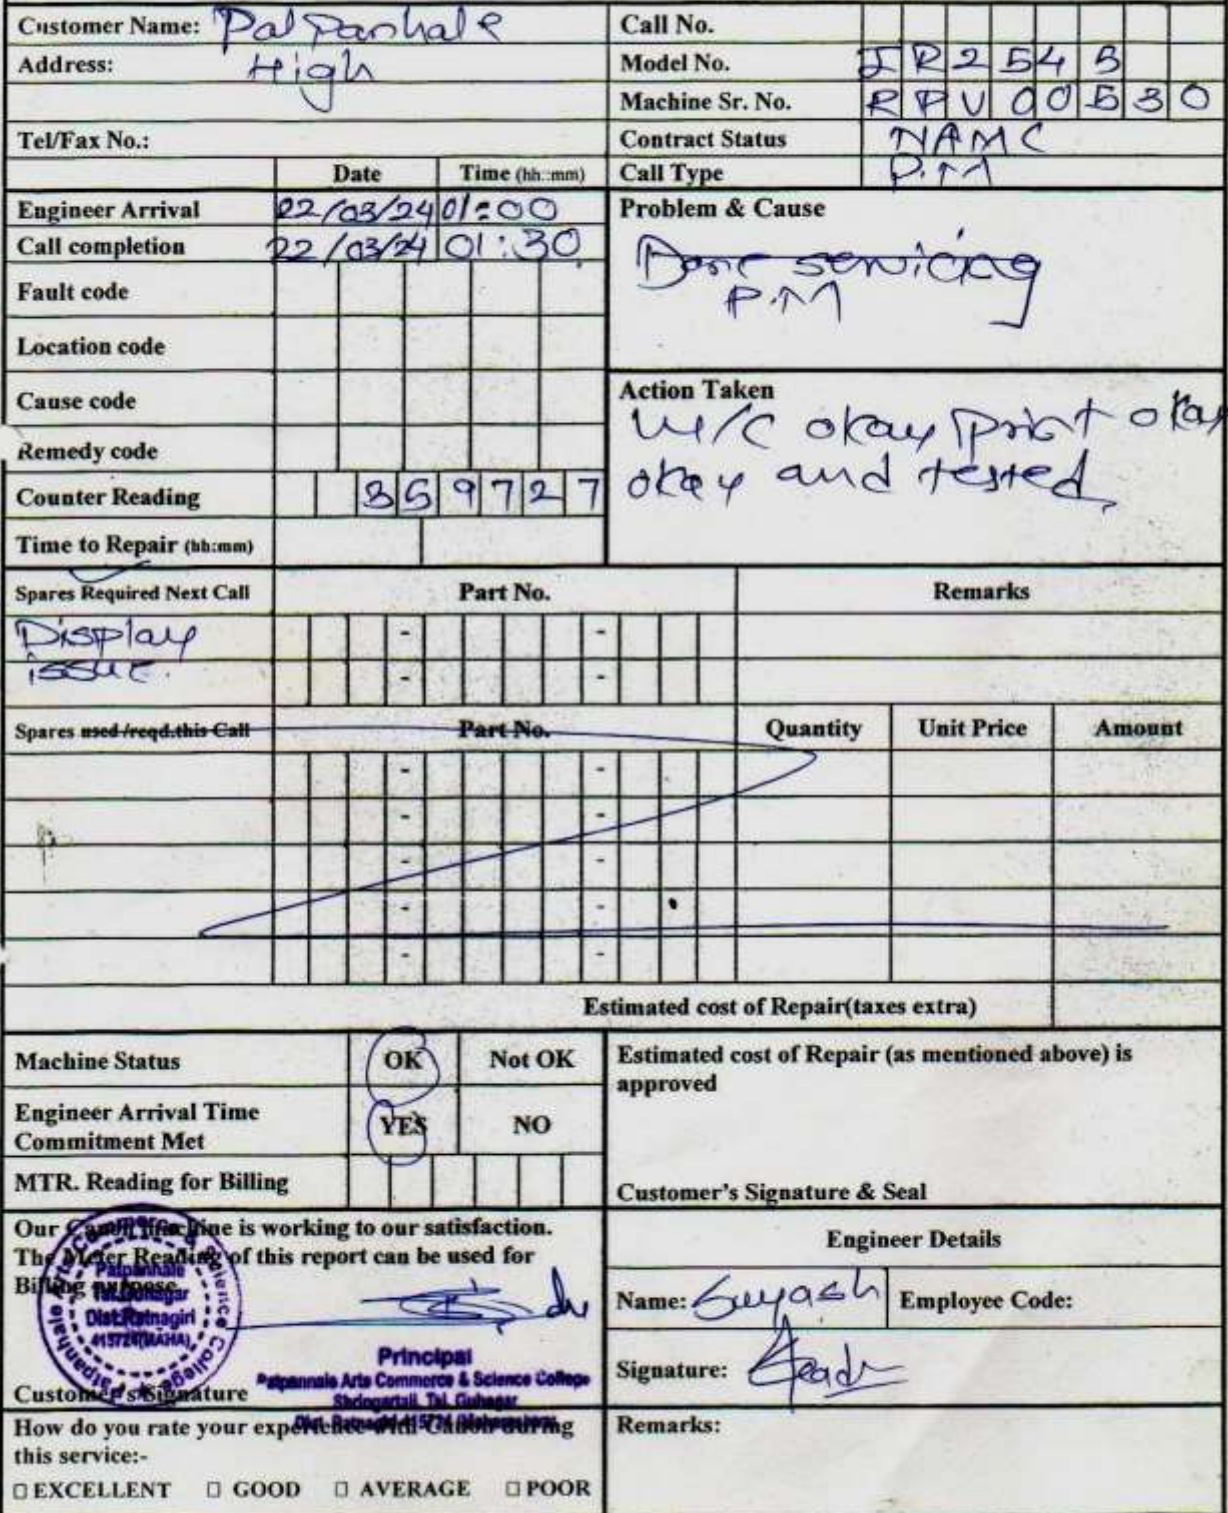 Customer Name: Patpanhale
Address: High
Call No.
Model No. IR2545
Machine Sr. No. RPV00530
Tel/Fax No.:
Contract Status NAMC
Date Time (hh::mm) Call Type P.M
Engineer Arrival 22/03/24 01:00
Call completion 22/03/24 01:30
Problem & Cause
Done servicing
P.M
Fault code
Location code
Cause code
Remedy code
Counter Reading 359727
Time to Repair (hh:mm)
Action Taken
M/C okay print okay
okay and tested
Spares Required Next Call Part No. Remarks
Display
issue.
Spares used /reqd.this Call Part No. Quantity Unit Price Amount
Estimated cost of Repair(taxes extra)
Machine Status OK Not OK
Engineer Arrival Time
Commitment Met YES NO
MTR. Reading for Billing
Estimated cost of Repair (as mentioned above) is
approved
Customer's Signature & Seal
Our Canon Machine is working to our satisfaction.
The Meter Reading of this report can be used for
Billing purpose
Patpanhale
Tal.Guhagar
Dist.Ratnagiri
415724(MAHA)
Patpanhale Arts Commerce & Science College
Principal
Patpannale Arts Commerce & Science College
Shringartali, Tal. Guhagar
Dist. Ratnagiri 415724
Customer's Signature
Engineer Details
Name: Suyash Employee Code:
Signature:
How do you rate your experience with Canon during
this service:-
EXCELLENT GOOD AVERAGE POOR
Remarks: